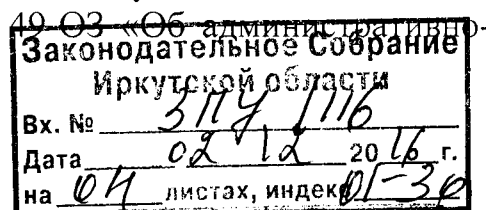 49-ОЗ «Об административно-
Законодательное Собрание
Иркутской области
Вх. № ЗПУ 1116
Дата 02 12 2016 г.
на 04 листах, индекс 01-36